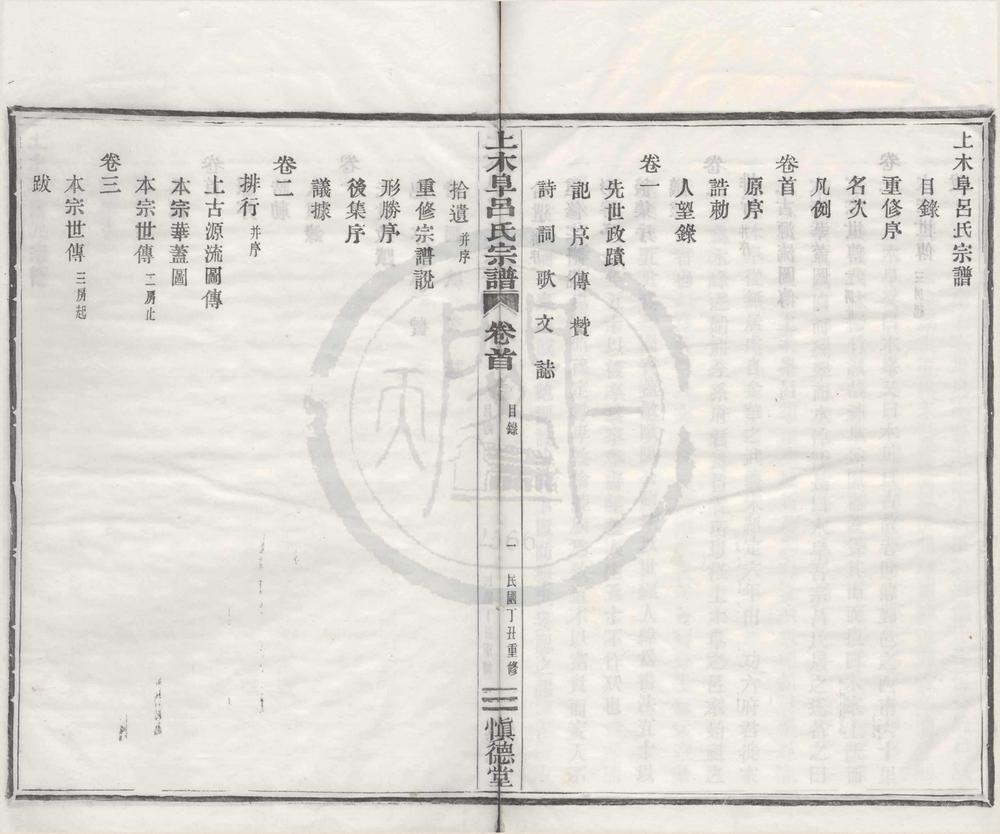 上木阜呂氏宗譜
目錄
重修序
名次
凡例
卷首
原序
誥勅
人望錄
卷一
先世政蹟
記 序 傳 贊
詩 詞 歌 文 誌
上木阜呂氏宗譜 卷首 目錄 一 民國丁丑重修 愼德堂
拾遺 并序
重修宗譜説
形勝序
後集序
議據
卷二
排行 并序
上古源流圖傳
本宗華蓋圖
本宗世傳 二房止
卷三
本宗世傳 三房起
跋